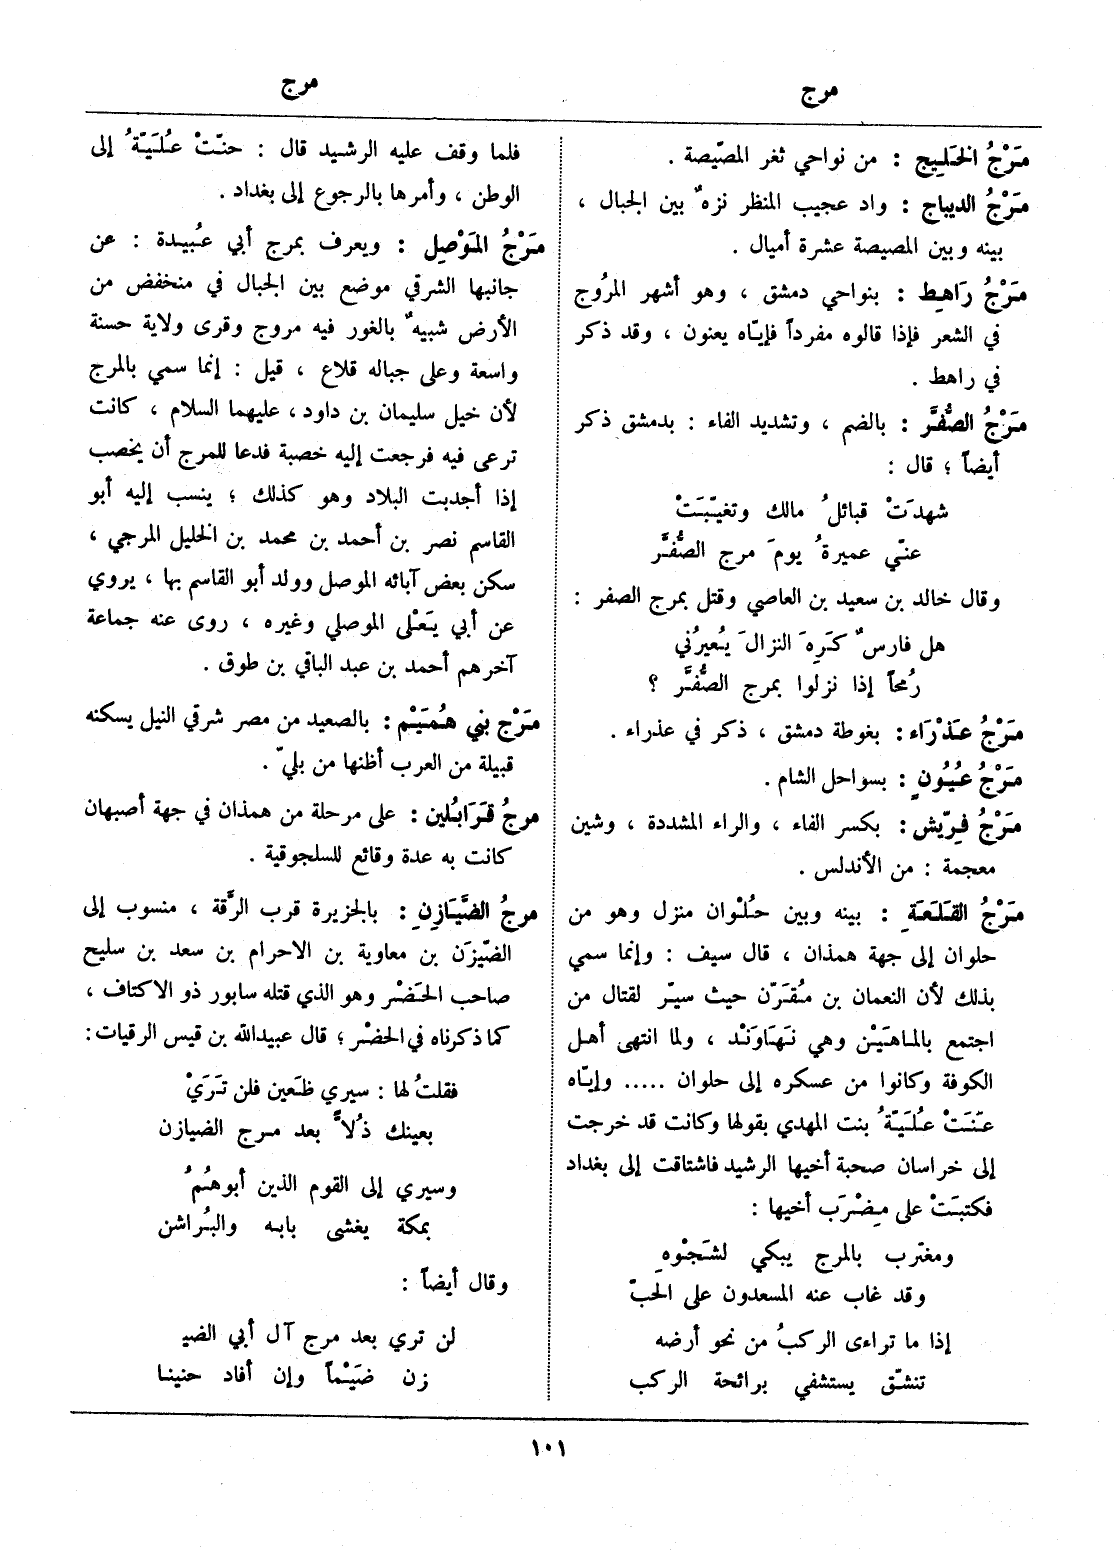 مرج
مرج
مَرْجُ الخَليجِ : من نواحي ثغر المصّيصة .
مَرْجُ الديباج : واد عجيب المنظر نزهٌ بين الجبال ،
بينه وبين المصيصة عشرة أميال .
مَرْجُ رَاهِطٍ : بنواحي دمشق ، وهو أشهر المُروج
في الشعر فإذا قالوه مفرداً فإيّاه يعنون ، وقد ذكر
في راهط .
مَرْجُ الصُّفَّر : بالضم ، وتشديد الفاء : بدمشق ذكر
أيضاً ؛ قال :
شهدَتْ قبائلُ مالك وتغيّبَتْ
عنّي عميرةُ يومَ مرج الصُّفَّر
وقال خالد بن سعيد بن العاصي وقتل بمرج الصفر :
هل فارسٌ كَرِهَ النزالَ يُعيرُني
رُمحاً إذا نزلوا بمرج الصُّفَّر ؟
مَرْجُ عَذْرَاء : بغوطة دمشق ، ذكر في عذراء .
مَرْجُ عُيُونٍ : بسواحل الشام .
مَرْجُ فِرّيش : بكسر الفاء ، والراء المشددة ، وشين
معجمة : من الأندلس .
مَرْجُ القَلَعَةِ : بينه وبين حُلْوان منزل وهو من
حلوان إلى جهة همذان ، قال سيف : وإنما سمي
بذلك لأن النعمان بن مُقَرّن حيث سيّر لقتال من
اجتمع بالماهَيْن وهي نَهَاوَنْد ، ولما انتهى أهل
الكوفة وكانوا من عسكره إلى حلوان ..... وإيّاه
عنَتْ عُلَيّةُ بنت المهدي بقولها وكانت قد خرجت
إلى خراسان صحبة أخيها الرشيد فاشتاقت إلى بغداد
فكتبَتْ على مِضْرَب أخيها :
ومغترب بالمرج يبكي لشَجْوهِ
وقد غاب عنه المسعدون على الحبّ
إذا ما تراءى الركبُ من نحو أرضه
تنشّق يستشفي برائحة الركب
فلما وقف عليه الرشيد قال : حنّتْ عُلَيّةُ إلى
الوطن ، وأمرها بالرجوع إلى بغداد .
مَرْجُ المَوْصِل : ويعرف بمرج أبي عُبيدة : عن
جانبها الشرقي موضع بين الجبال في منخفض من
الأرض شبيهٌ بالغور فيه مروج وقرى ولاية حسنة
واسعة وعلى جباله قلاع ، قيل : إنما سمي بالمرج
لأن خيل سليمان بن داود ، عليهما السلام ، كانت
ترعى فيه فرجعت إليه خصبة فدعا للمرج أن يخصب
إذا أجدبت البلاد وهو كذلك ؛ ينسب إليه أبو
القاسم نصر بن أحمد بن محمد بن الخليل المرجي ،
سكن بعض آبائه الموصل وولد أبو القاسم بها ، يروي
عن أبي يَعْلى الموصلي وغيره ، روى عنه جماعة
آخرهم أحمد بن عبد الباقي بن طوق .
مَرْج بني هُمَيْم : بالصعيد من مصر شرقي النيل يسكنه
قبيلة من العرب أظنها من بليّ .
مرجُ قَرَابُلين : على مرحلة من همذان في جهة أصبهان
كانت به عدة وقائع للسلجوقية .
مرجُ الضَّيَازِنِ : بالجزيرة قرب الرَّقة ، منسوب إلى
الضّيزَن بن معاوية بن الاحرام بن سعد بن سليح
صاحب الحَضْر وهو الذي قتله سابور ذو الاكتاف ،
كما ذكرناه في الحضْر ؛ قال عبيدالله بن قيس الرقيات :
فقلتُ لها : سيري ظَعين فلن تَرَيْ
بعينك ذُلاًّ بعد مرج الضيازن
وسيري إلى القوم الذين أبوهُمُ
بمكة يغشى بابه والبُراشن
وقال أيضاً :
لن تري بعد مرج آل أبي الضيـ
زن ضَيْماً وإن أفاد حنينا
١٠١